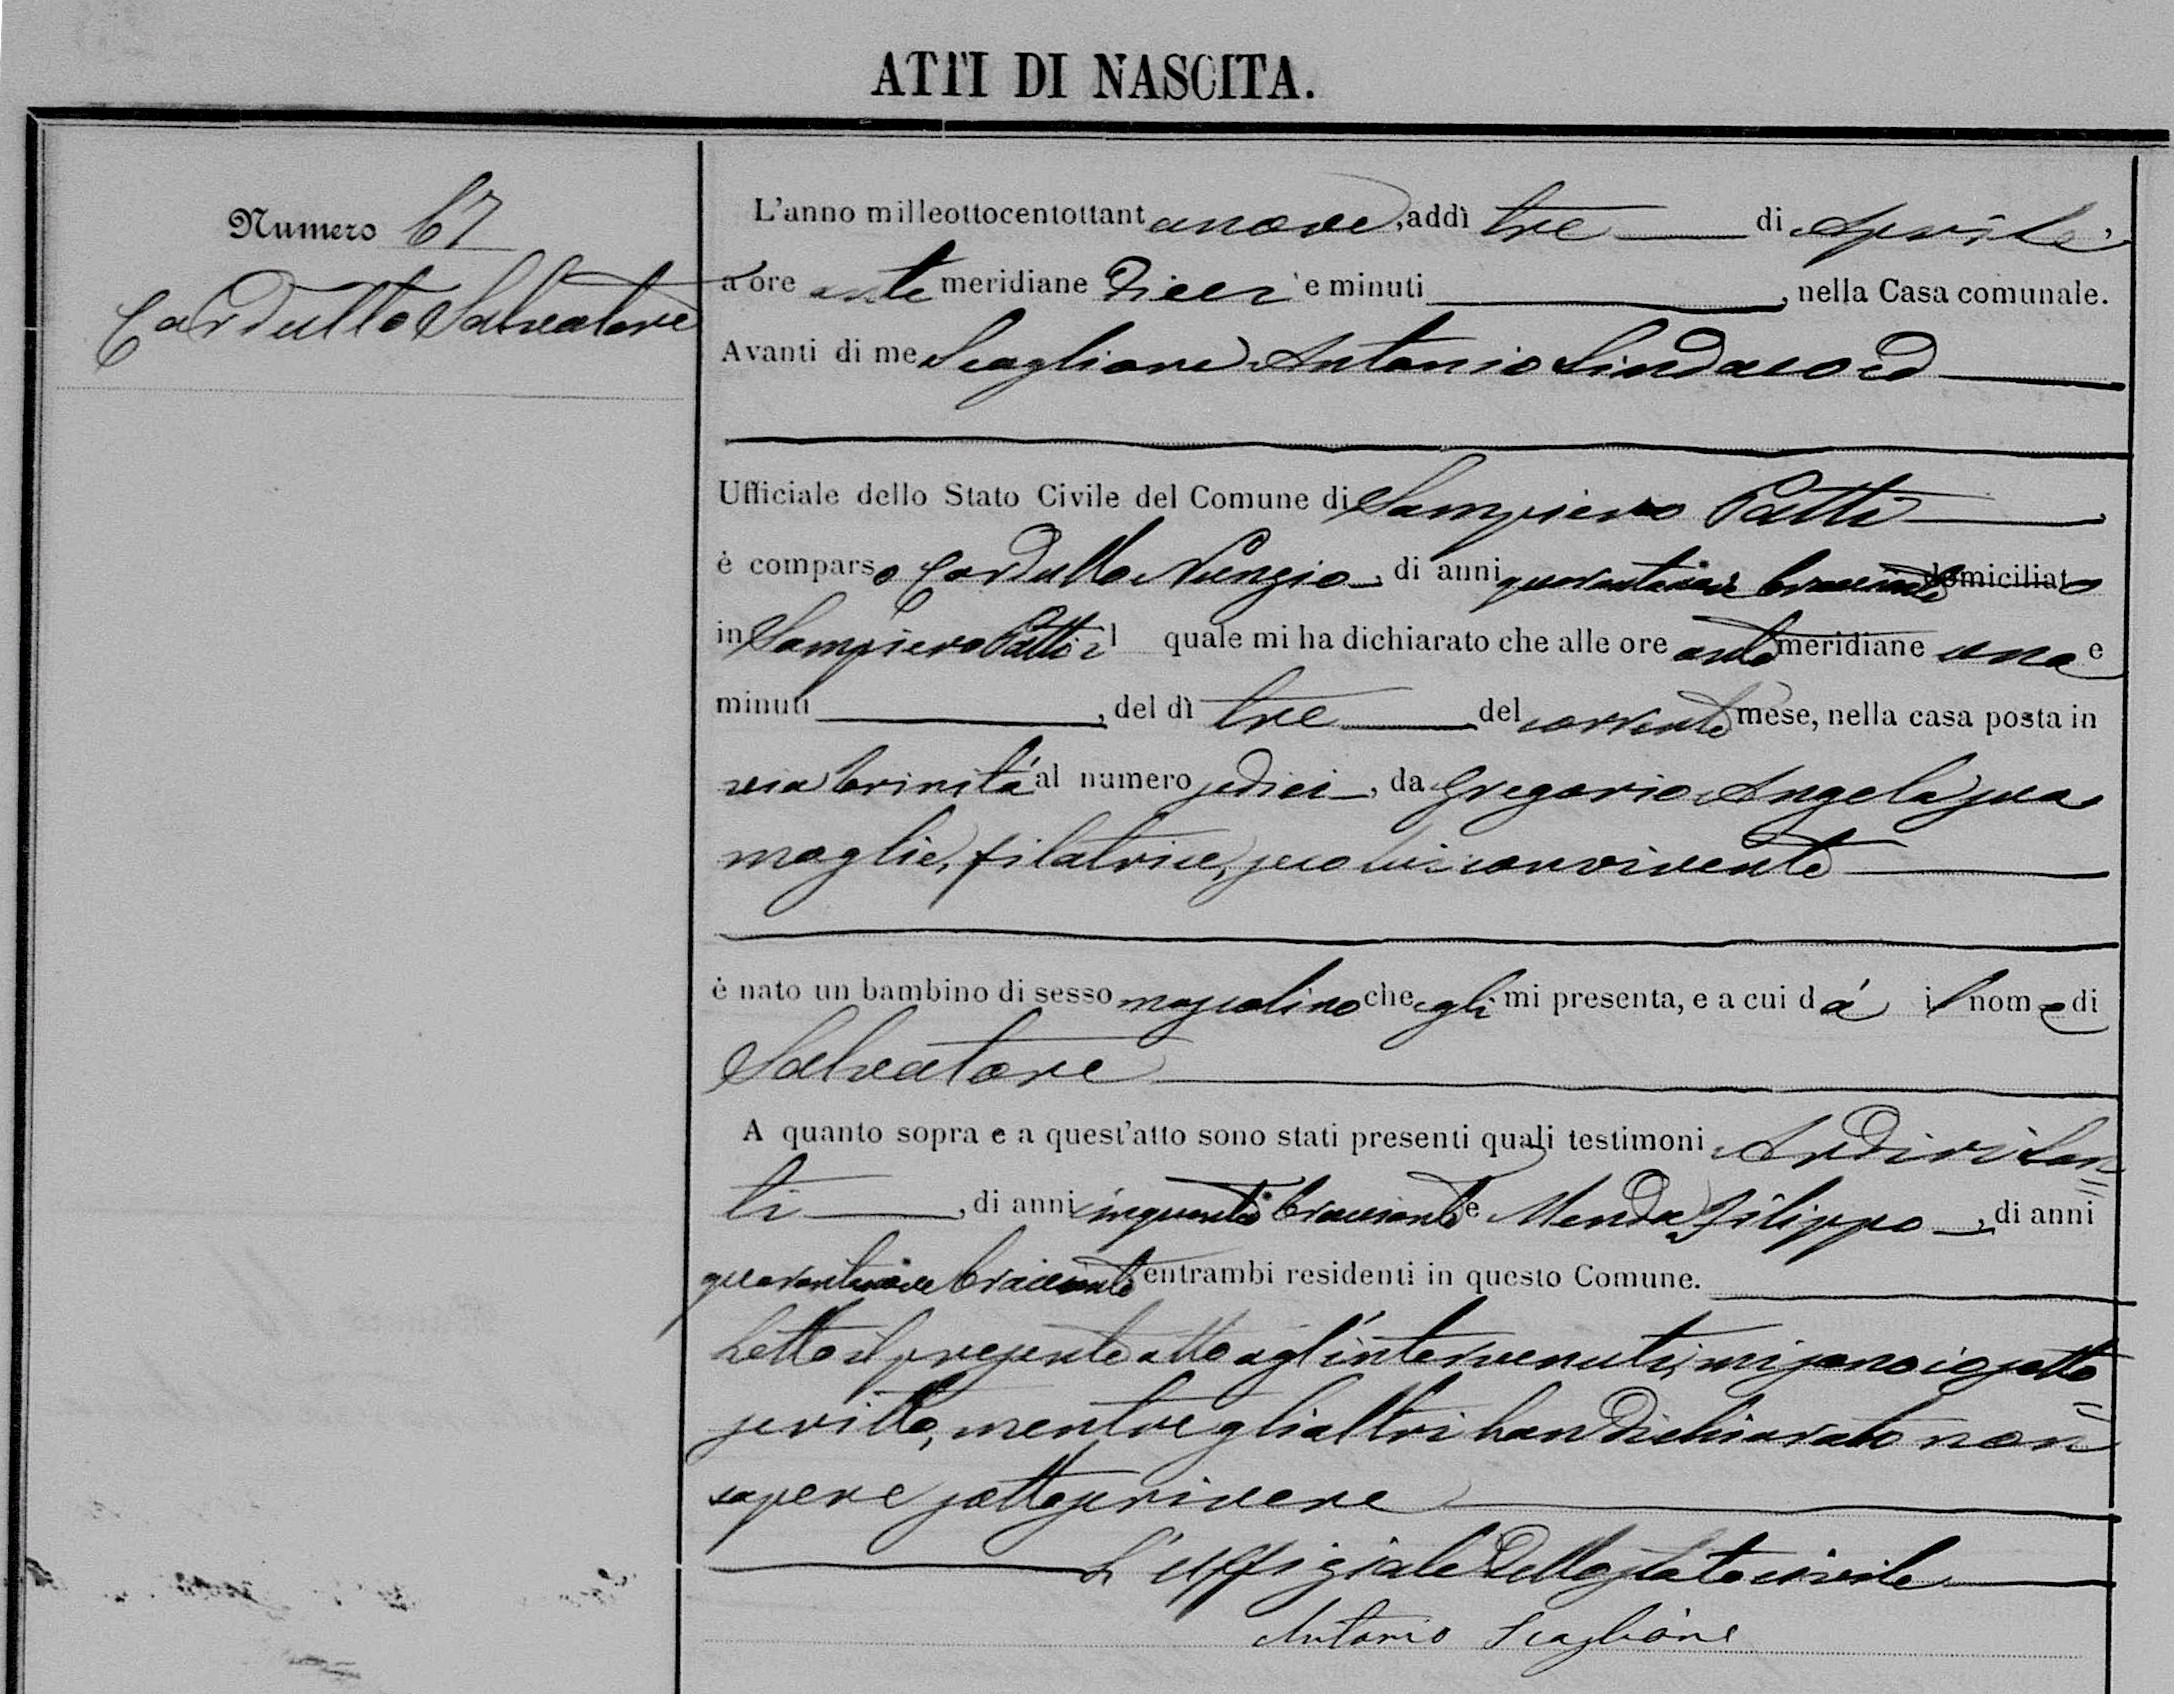 ATTI DI NASCITA.
Numero 67
Cardullo Salvatore
L'anno milleottocentottantanove, addì tre di Aprile,
a ore antemeridiane dieci e minuti , nella Casa comunale.
Avanti di me Scaglione Antonio Sindaco ed
Ufficiale dello Stato Civile del Comune di Sampiero Patti
è comparso Cardullo Nunzio, di anni quarantanove bracciante domiciliato
in Sampiero Patti il quale mi ha dichiarato che alle ore antemeridiane una e
minuti , del dì tre del corrente mese, nella casa posta in
via Trinità al numero sedici, da Gregorio Angela sua
moglie, filatrice, seco lui convivente
è nato un bambino di sesso mascolino che egli mi presenta, e a cui dà il nome di
Salvatore
A quanto sopra e a quest'atto sono stati presenti quali testimoni Ardiri San=
ti , di anni cinquanta bracciante e Monda Filippo, di anni
quarantanove bracciante entrambi residenti in questo Comune.
Letto il presente atto agl'intervenuti, mi sono io sotto=
scritto, mentre gli altri han dichiarato non
sapere sottoscrivere
L'uffiziale dello stato civile
Antonio Scaglione